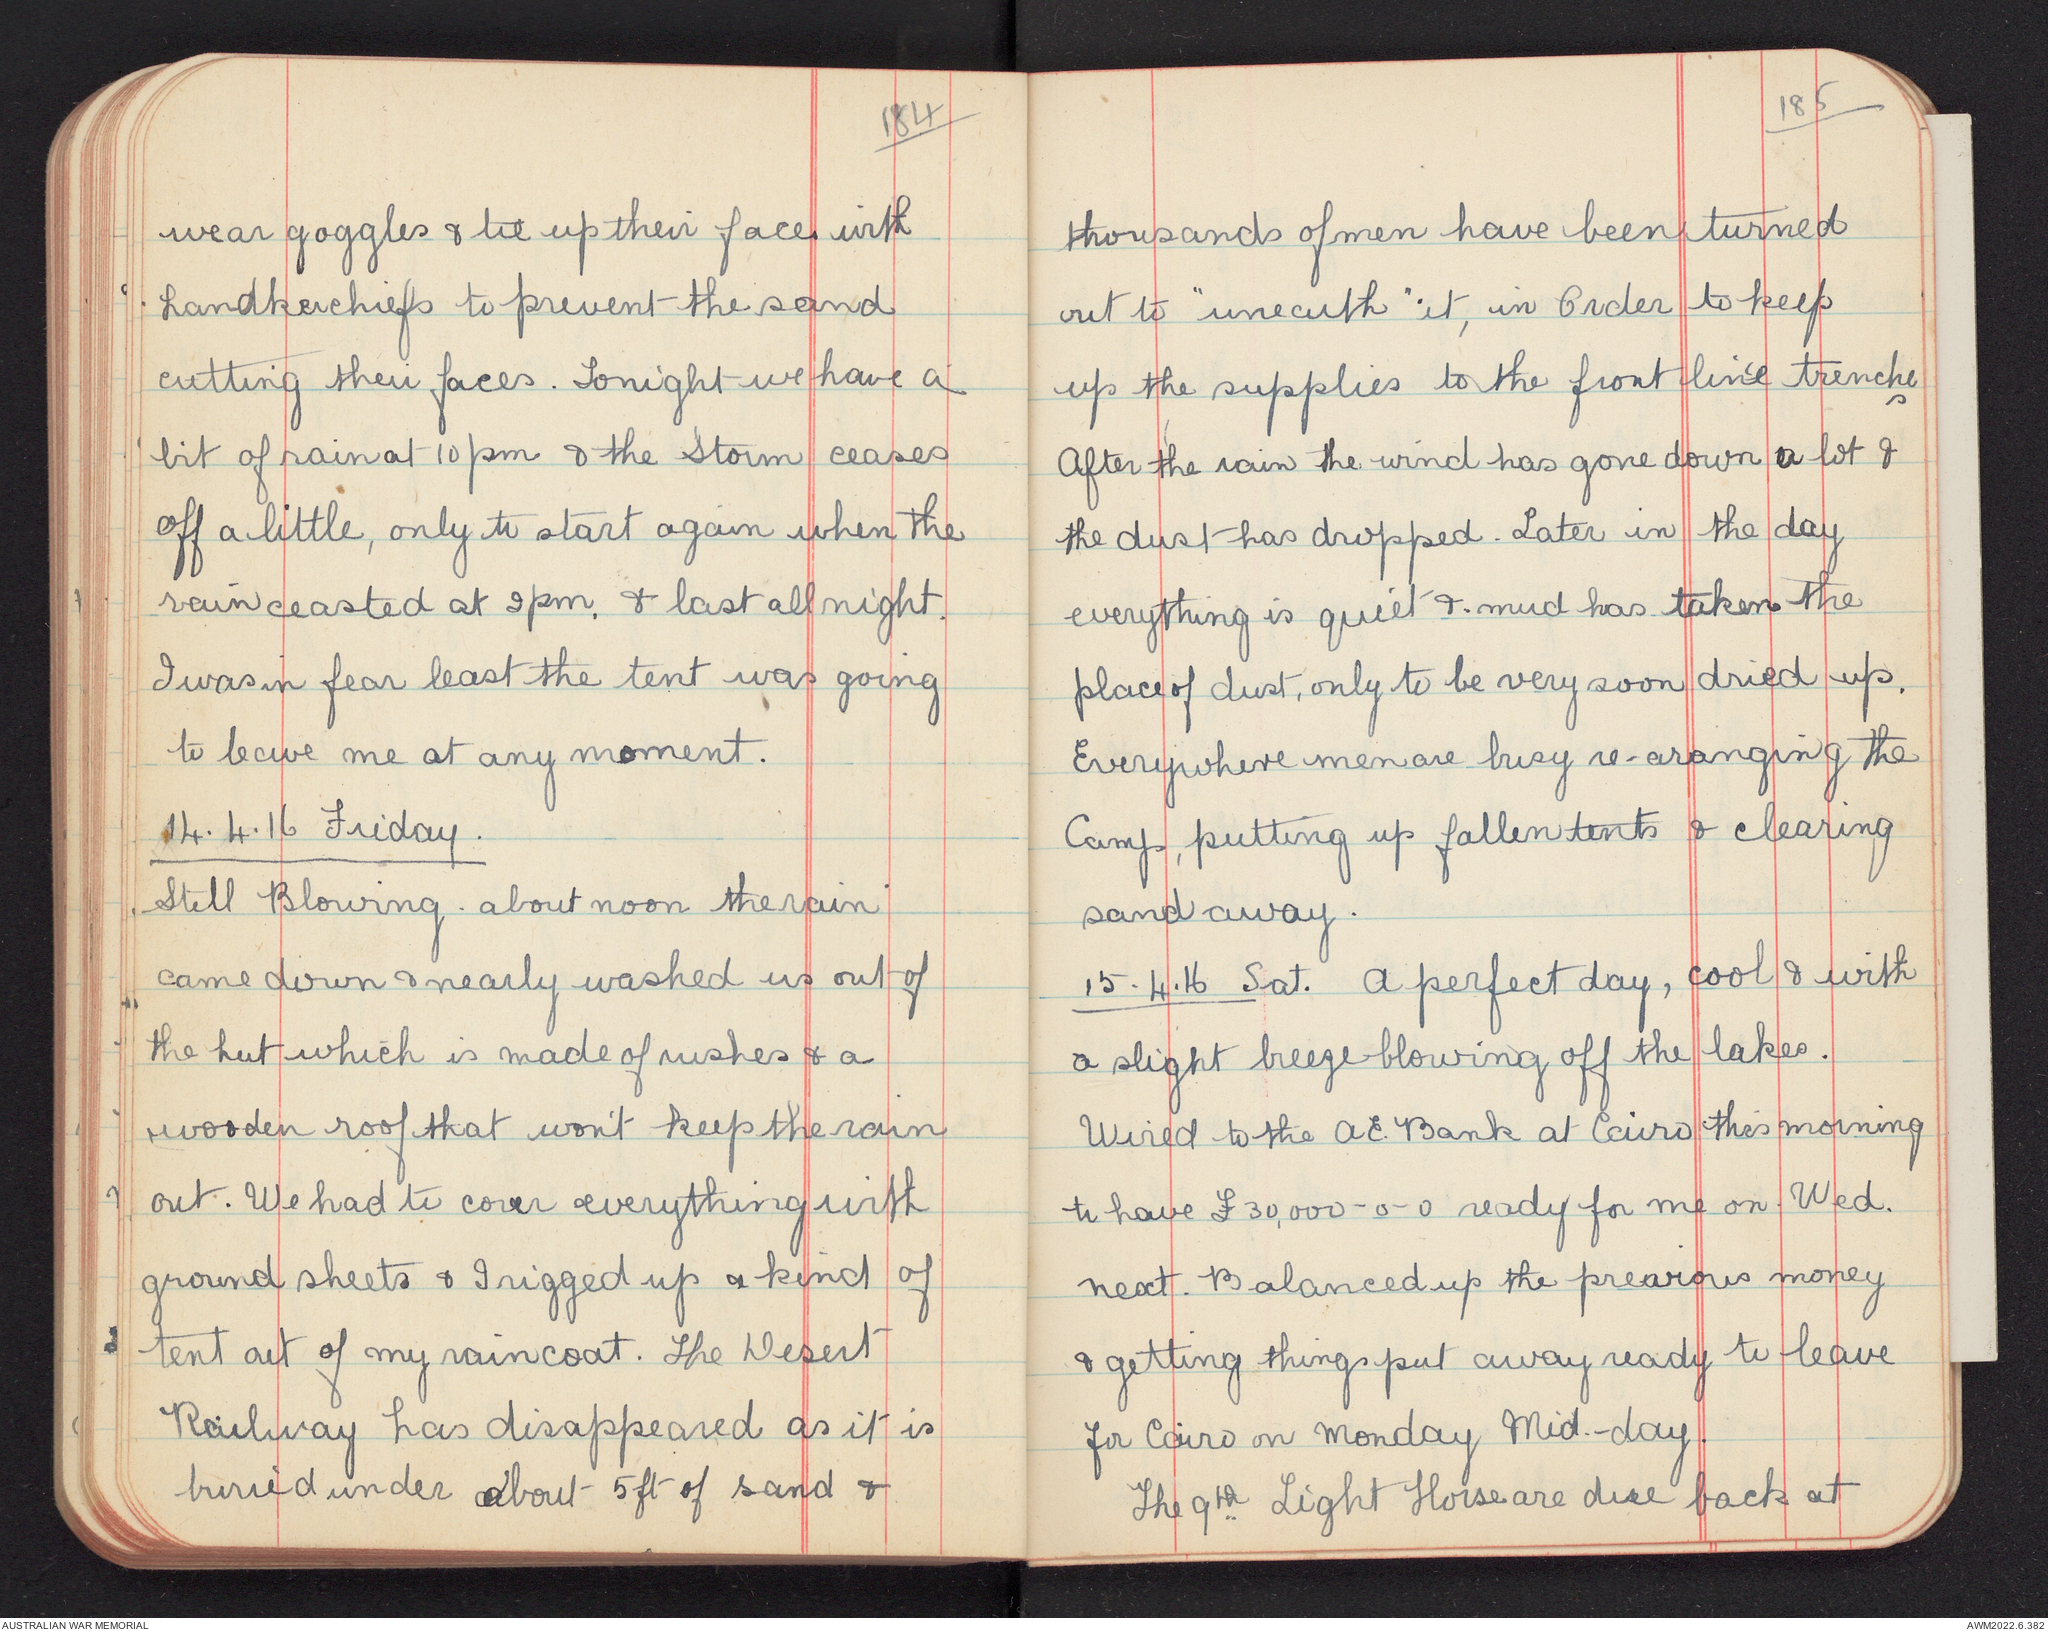 184
wear goggles & tie up their faces with
handkerchiefs to prevent the sand
cutting their faces. Tonight we have a
bit of rain at 10pm & the Storm ceases
off a little, only to start again when the
rain ceasted at 2pm. & last all night.
I was in fear least the tent was going
to leave me at any moment.
14.4.16 Friday.
Still Blowing. about noon the rain
came down & nearly washed us out of
the hut which is made of rushes & a
wooden roof that won't keep the rain
out. We had to cover everything with
ground sheets & I rigged up a kind of
tent out of my raincoat. The Desert
Railway has disappeared as it is
buried under about 5ft of sand &
185
thousands of men have been turned
out to "unearth" it, in Order to keep
up the supplies to the front line trenche
s
After the rain the wind has gone down a lot &
the dust has dropped. Later in the day
everything is quiet &. mud has taken the
place of dust, only to be very soon dried up.
Everywhere men are busy re-aranging the
Camp, putting up fallen tents & clearing
sand away.
15.4.16 Sat. A perfect day, cool & with
a slight breeze blowing off the lakes.
Wired to the A.E. Bank at Cairo this morning
to have £30,000-0-0 ready for me on Wed.
next. Balanced up the prearious money
& getting things put away ready to leave
for Cairo on Monday Mid.-day.
The 9th Light Horse are due back at
AUSTRALIAN WAR MEMORIAL
AWM2022.6.382